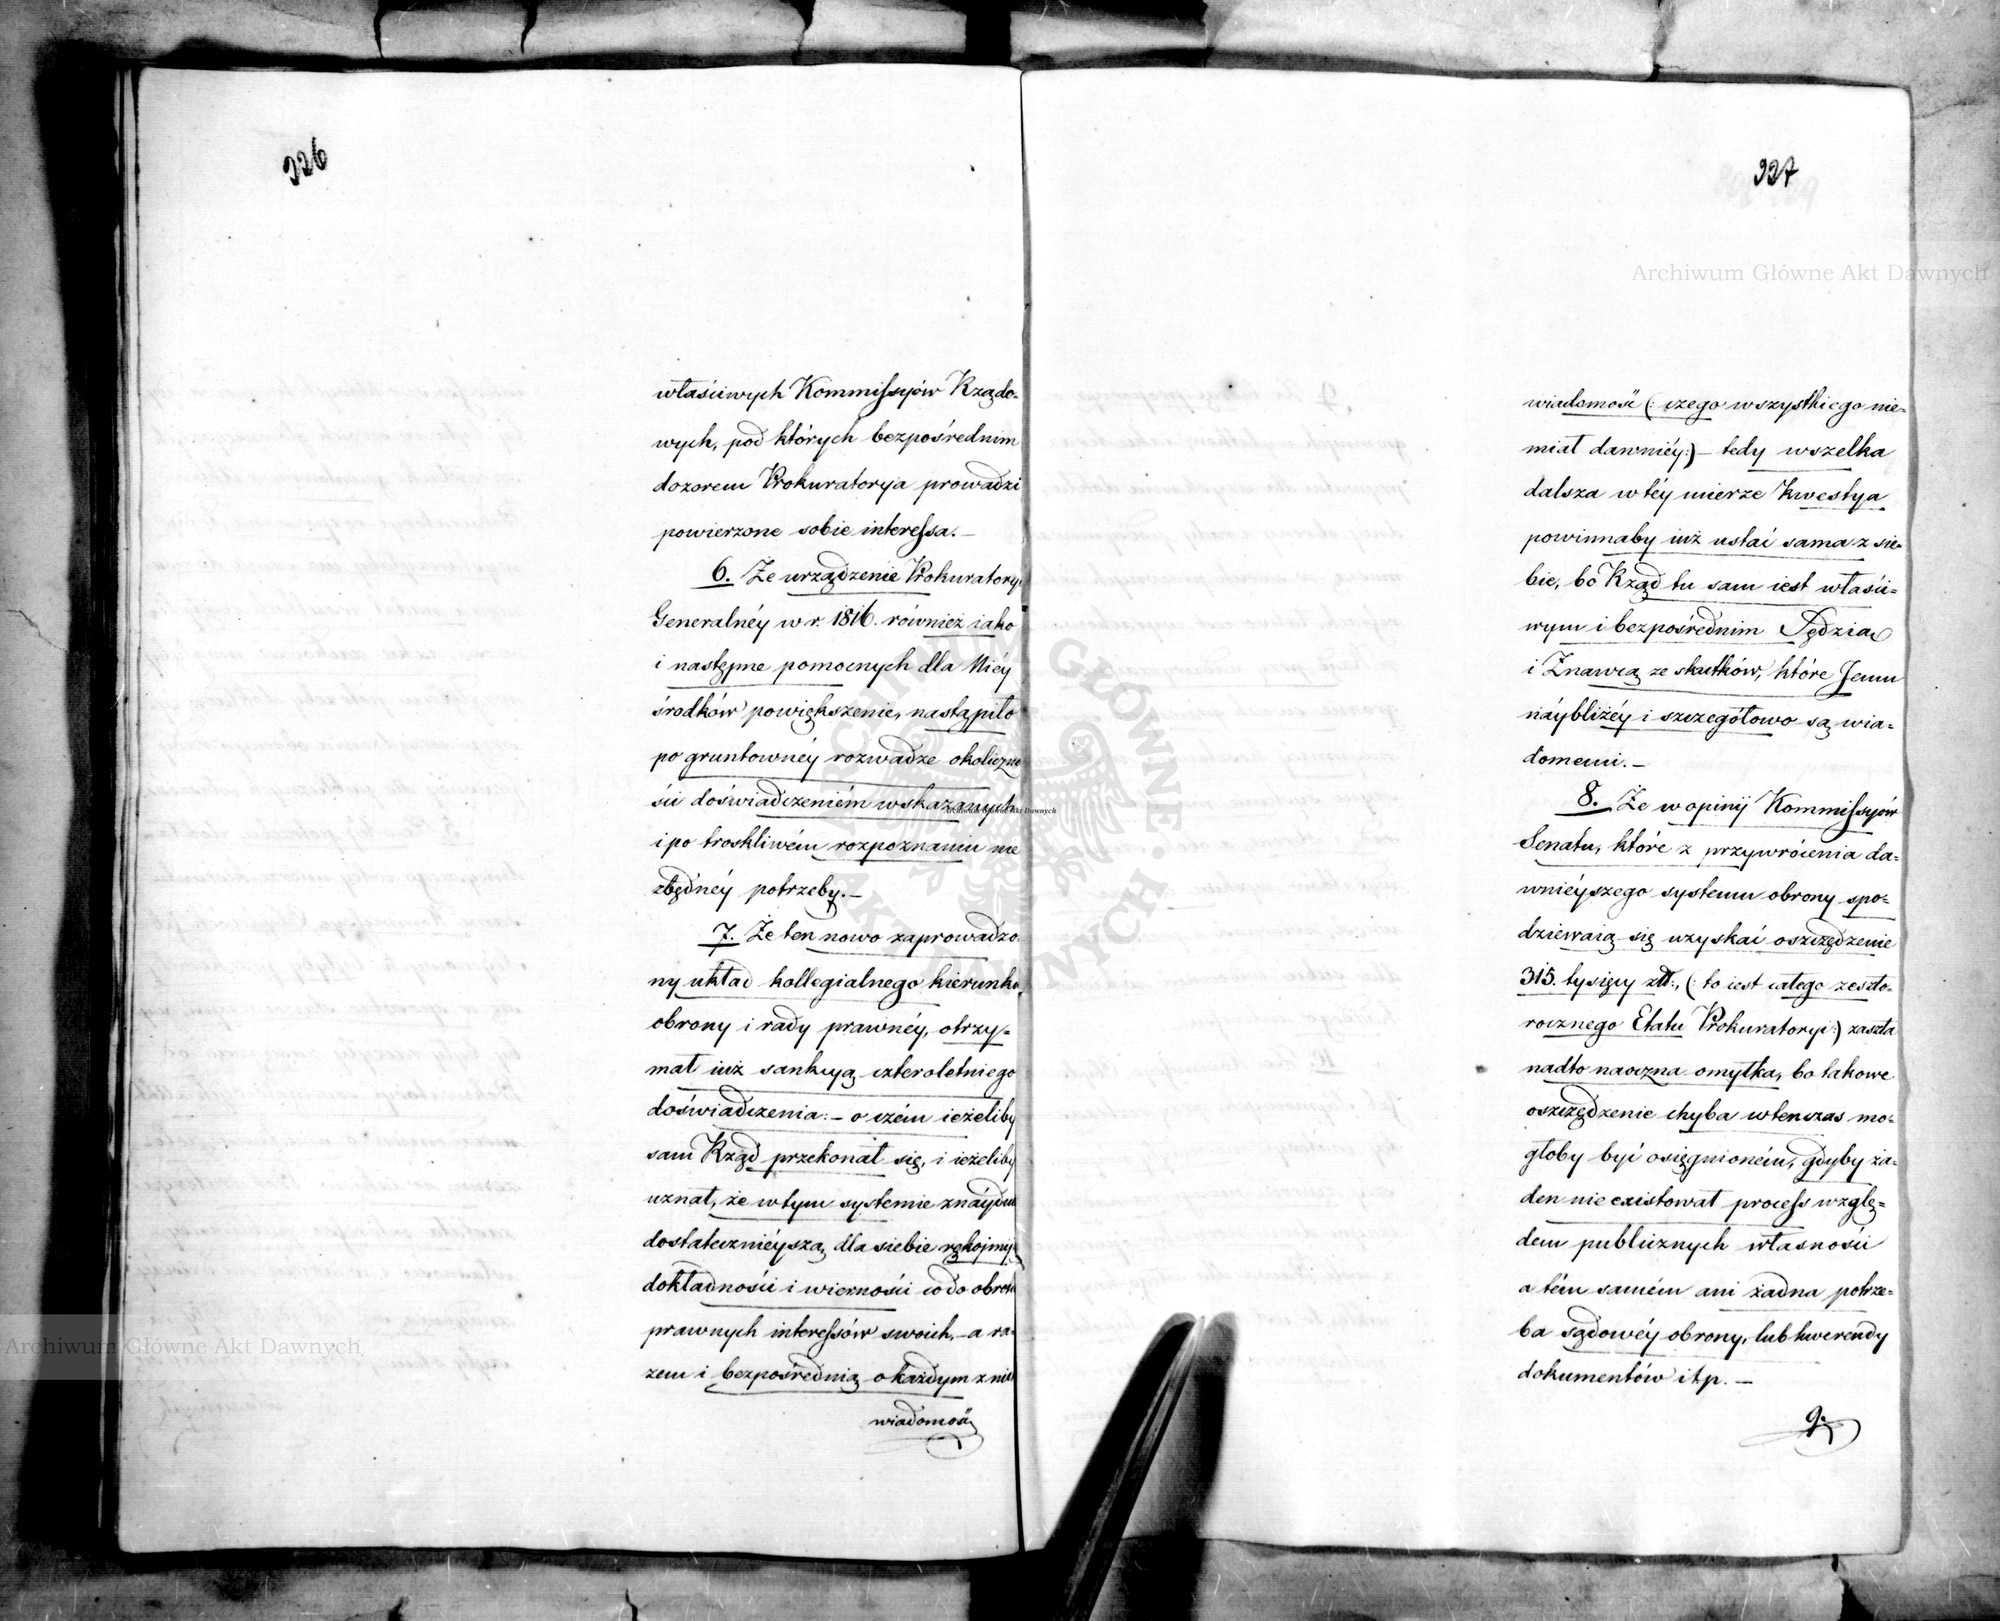 226
właściwych Kommissyów Rządo-
wych, pod których bezpośrednim
dozorem Prokuratorya prowadzi
powierzone sobie interessa. —
6. Że urządzenie Prokuratoryi
Generalnéy w r. 1816. również iako
i następne pomocnych dla Niéy
środków powiększenie, nastąpiło
po gruntownéy rozwadze okoliczno
ści doświadczeniém wskazanych
i po troskliwém rozpoznaniu nie
zbędnéy potrzeby. —
7. Że ten nowo zaprowadzo
ny układ kollegialnego kierunku
obrony i rady prawnéy, otrzy-
mał iuż sankcyą czteroletniego
doświadczenia: — o czém ieżeliby
sam Rząd przekonał się, i ieżeliby
uznał, że w tym systemie znáydu
dostatecznieyszą dla siebie rękojmyą
dokładności i wierności co do obrony
prawnych interessów swoich, — a ra-
zem i bezpośrednią o każdym z nich
wiadomość
227
wiadomość (: czego wszystkiego nie-
miał dawniéy:) — tedy wszelka
dalsza w téy mierze Kwestya
powinnaby iuż ustać sama z sie-
bie, bo Rząd tu sam iest właści-
wym i bezpośrednim Sędzią
i Znawcą ze skutków, które Jemu
náybliżéy i szczegółowo są wia-
domemi. —
8. Że w opinij Kommissyów
Senatu, które z przywrócenia da-
wniéyszego systemu obrony spo-
dziewaią się uzyskać oszczędzenie
315. tysięcy złł:, (: to iest całego zeszło-
rocznego Etatu Prokuratoryi:) zaszła
nadto naoczna omyłka, bo takowe
oszczędzenie chyba wtenczas mo-
głoby być osięgnioném, gdyby ża-
den nie existował process wzglę-
dem publicznych własności
a tém samém ani żadna potrze-
ba sądowéy obrony, lub kwerendy
dokumentów itp. —
9.
Archiwum Główne Akt Dawnych
Archiwum Główne Akt Dawnych
Archiwum Główne Akt Dawnych